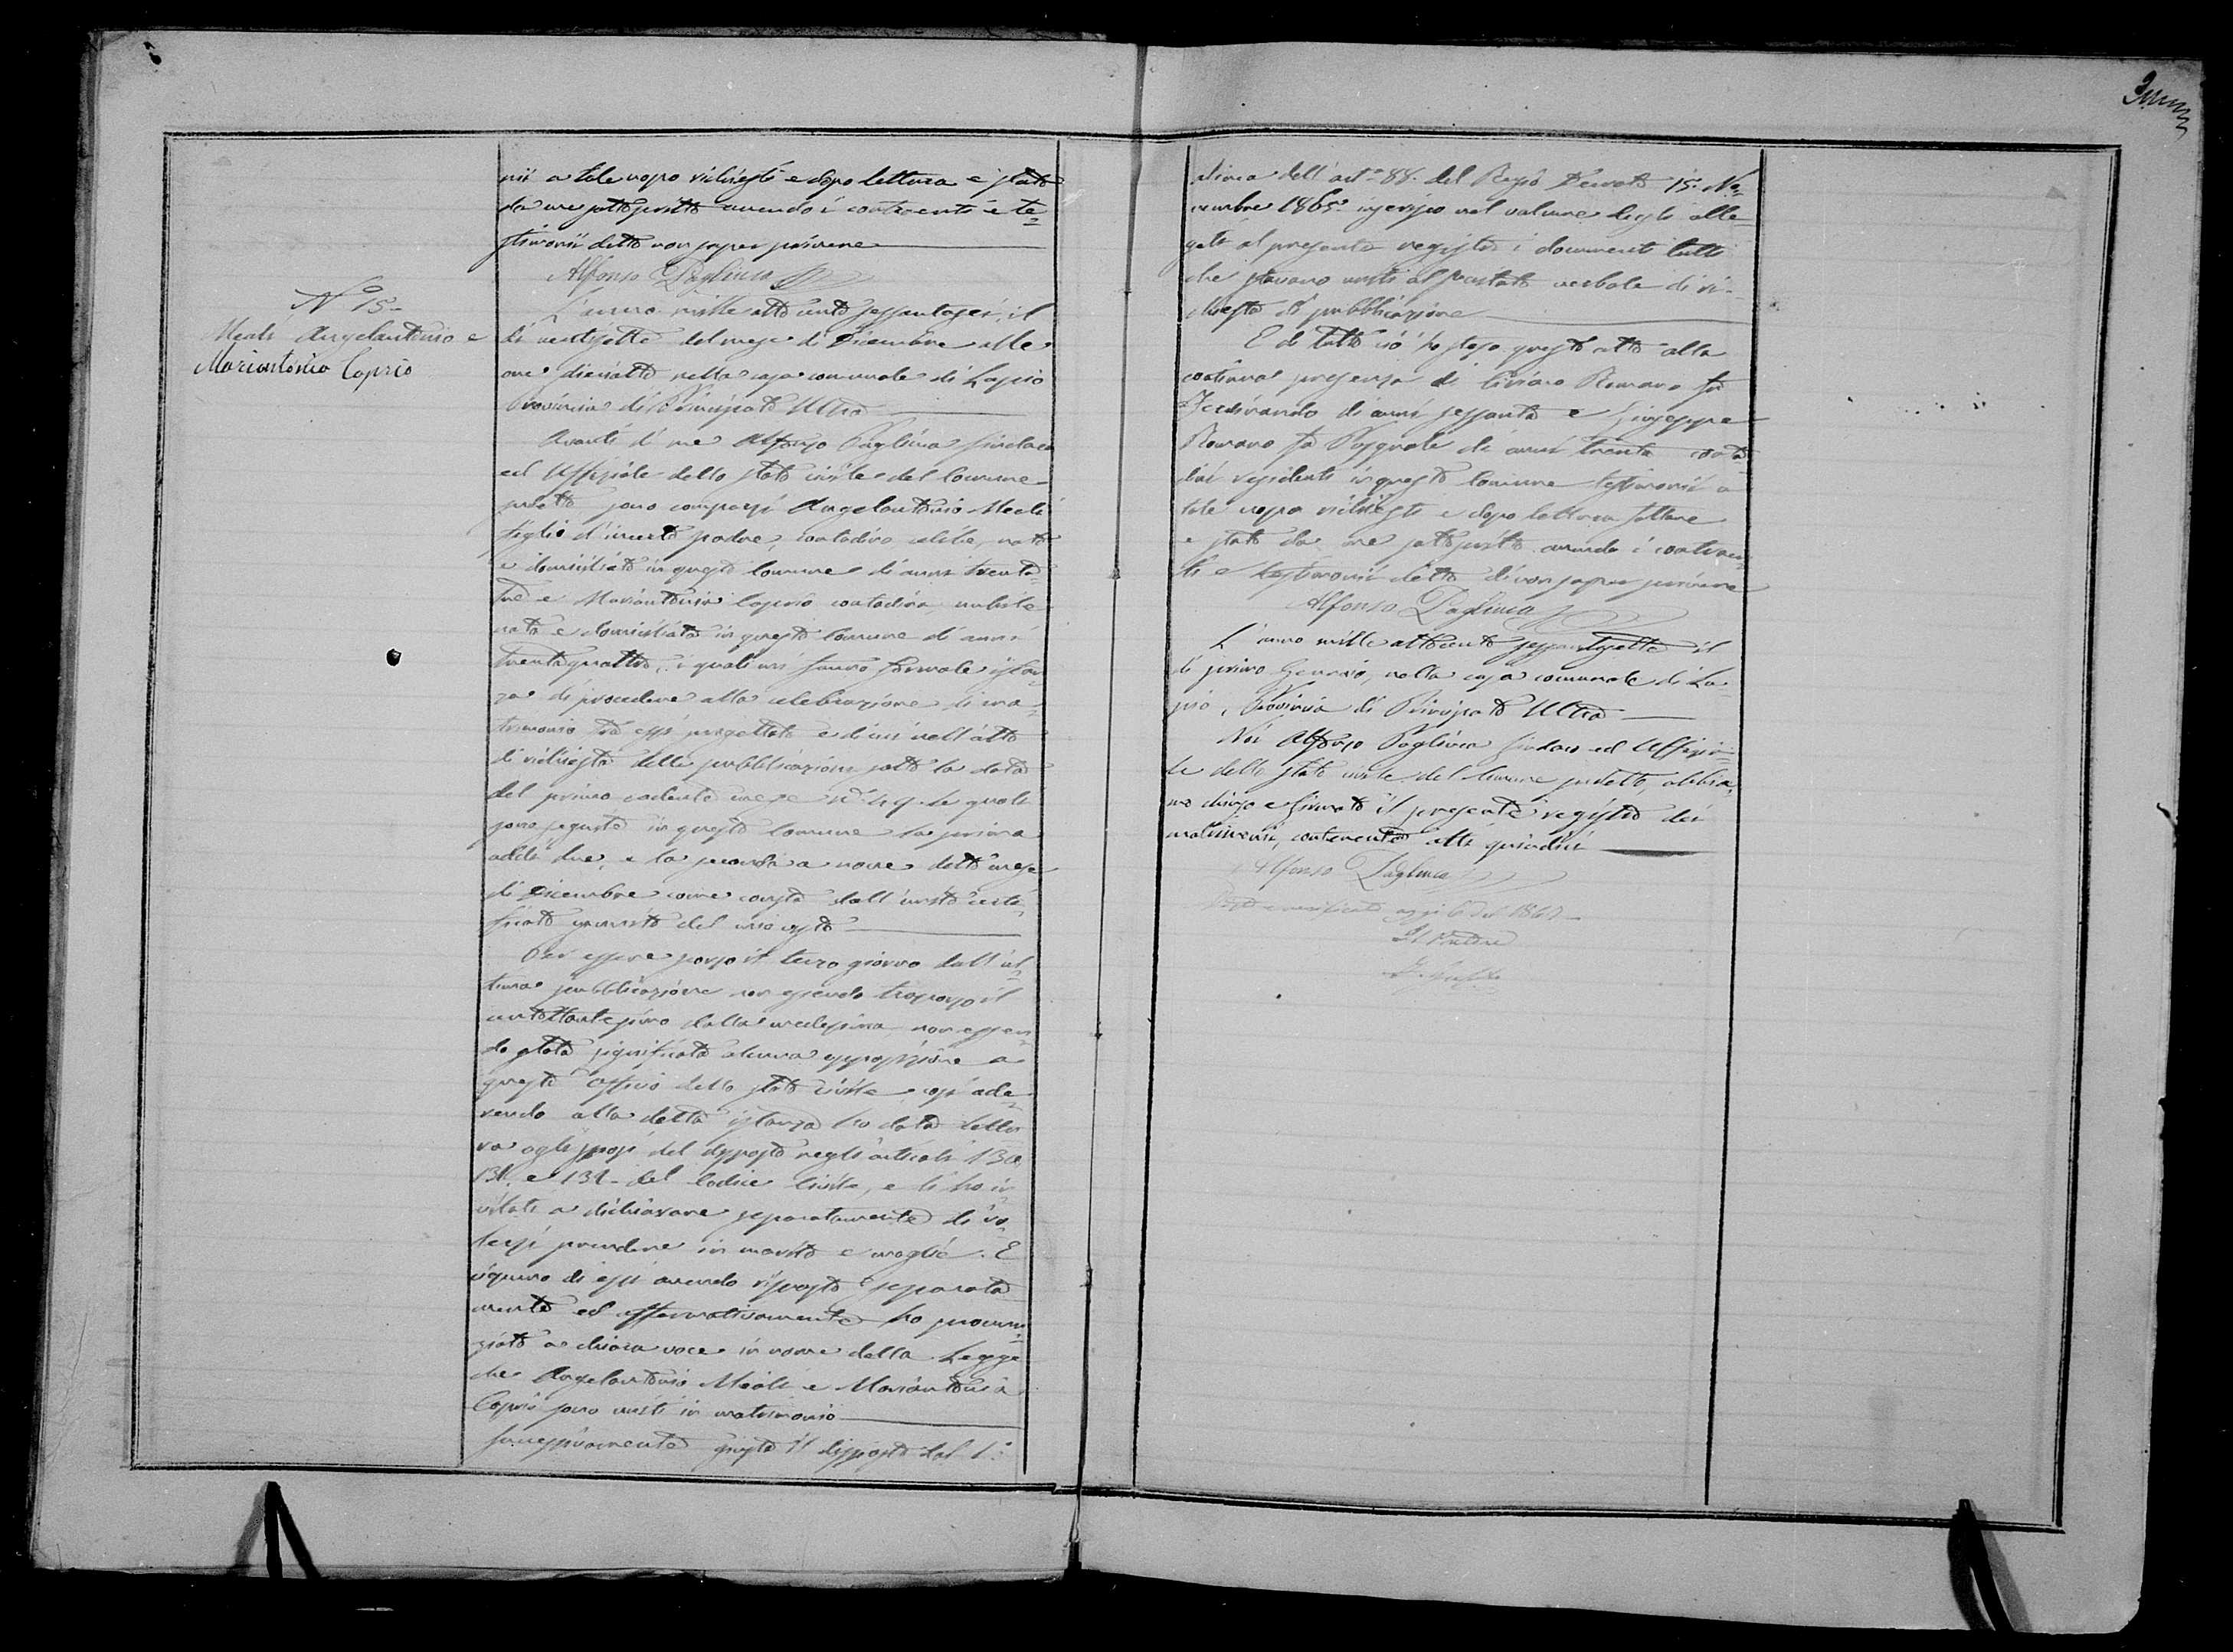 nii a tale uopo richiesti e dopo lettura è stato
da me sottoscritto avendo i contraenti e te-
stimonii detto non saper scrivere
Alfonso Pagliuca
N.º 15
Meoli Angelantonio e
Mariantonia Caprio
L'anno mille otto cento sessantasei, il
dì ventisette del mese di Dicembre alle
ore diciotto nella casa comunale di Lapio
Provincia di Principato Ultra
Avanti di me Alfonso Pagliuca Sindaco
ed Uffiziale dello stato civile del Comune
sudetto sono comparsi Angelantonio Meoli
figlio d'incerto padre, contadino celibe, nato
e domiciliato in questo Comune di anni trenta
tre e Mariantonia Caprio contadina, nubile
nata e domiciliata in questo Comune di anni
trentaquattro, i quali mi hanno formale istan-
za di procedere alla celebrazione di ma-
trimonio tra essi progettato e di cui nell'atto
di richiesta delle pubblicazioni sotto la data
del primo cadente mese n.º le quali
sono seguite in questo Comune la prima
addì due, e la seconda a nove detto mese
di Dicembre come consta dall'unito certi-
ficato
Per essere scorso il terzo giorno dall'ul-
tima pubblicazione non essendo trascorso il
centottantesimo dalla medesima, non essen-
do stata significata alcuna opposizione a
questo Officio dello stato civile, così ade-
rendo alla detta istanza ho dato lettu-
ra agli sposi del disposto negli articoli 130
131. e 132 del Codice Civile, e li ho in-
vitati a dichiarare separatamente di vo-
lersi prendere in marito e moglie. E
ciascuno di essi avendo risposto separata
mente ed affermativamente ho pronun-
ziato a chiara voce in nome della Legge
che Angelantonio Meoli e Mariantonia
Caprio sono uniti in matrimonio
Successivamente giusta il disposto dal 1.º
alinea dell'art.º 88. del Regio Decreto 15. No-
vembre 1865. inserisco nel volume degli alle-
gati al presente registro i documenti tutti
che stavano uniti al precitato verbale di ri-
chiesta di pubblicazione
E di tutto ciò ho steso quest'atto alla
continua presenza di Ciriaco Romano fu
Ferdinando di anni sessanta e Giuseppe
Romano fu Pasquale di anni trenta conta-
dini residenti in questo Comune testimonii a
tale uopo richiesti e dopo lettura fattane
è stato da me sottoscritto avendo i contraen-
ti e testimonii detto di non saper scrivere
Alfonso Pagliuca
L'anno mille ottocento sessantasette il
dì primo Gennaio, nella casa comunale di La-
pio, Provincia di Principato Ultra
Noi Alfonso Pagliuca Sindaco ed Uffizia-
le dello stato civile del Comune sudetto, abbia-
mo chiuso e firmato il presente registro dei
matrimonii, contenente atti quindici
Alfonso Pagliuca
verificato oggi 1867
Il Pretore